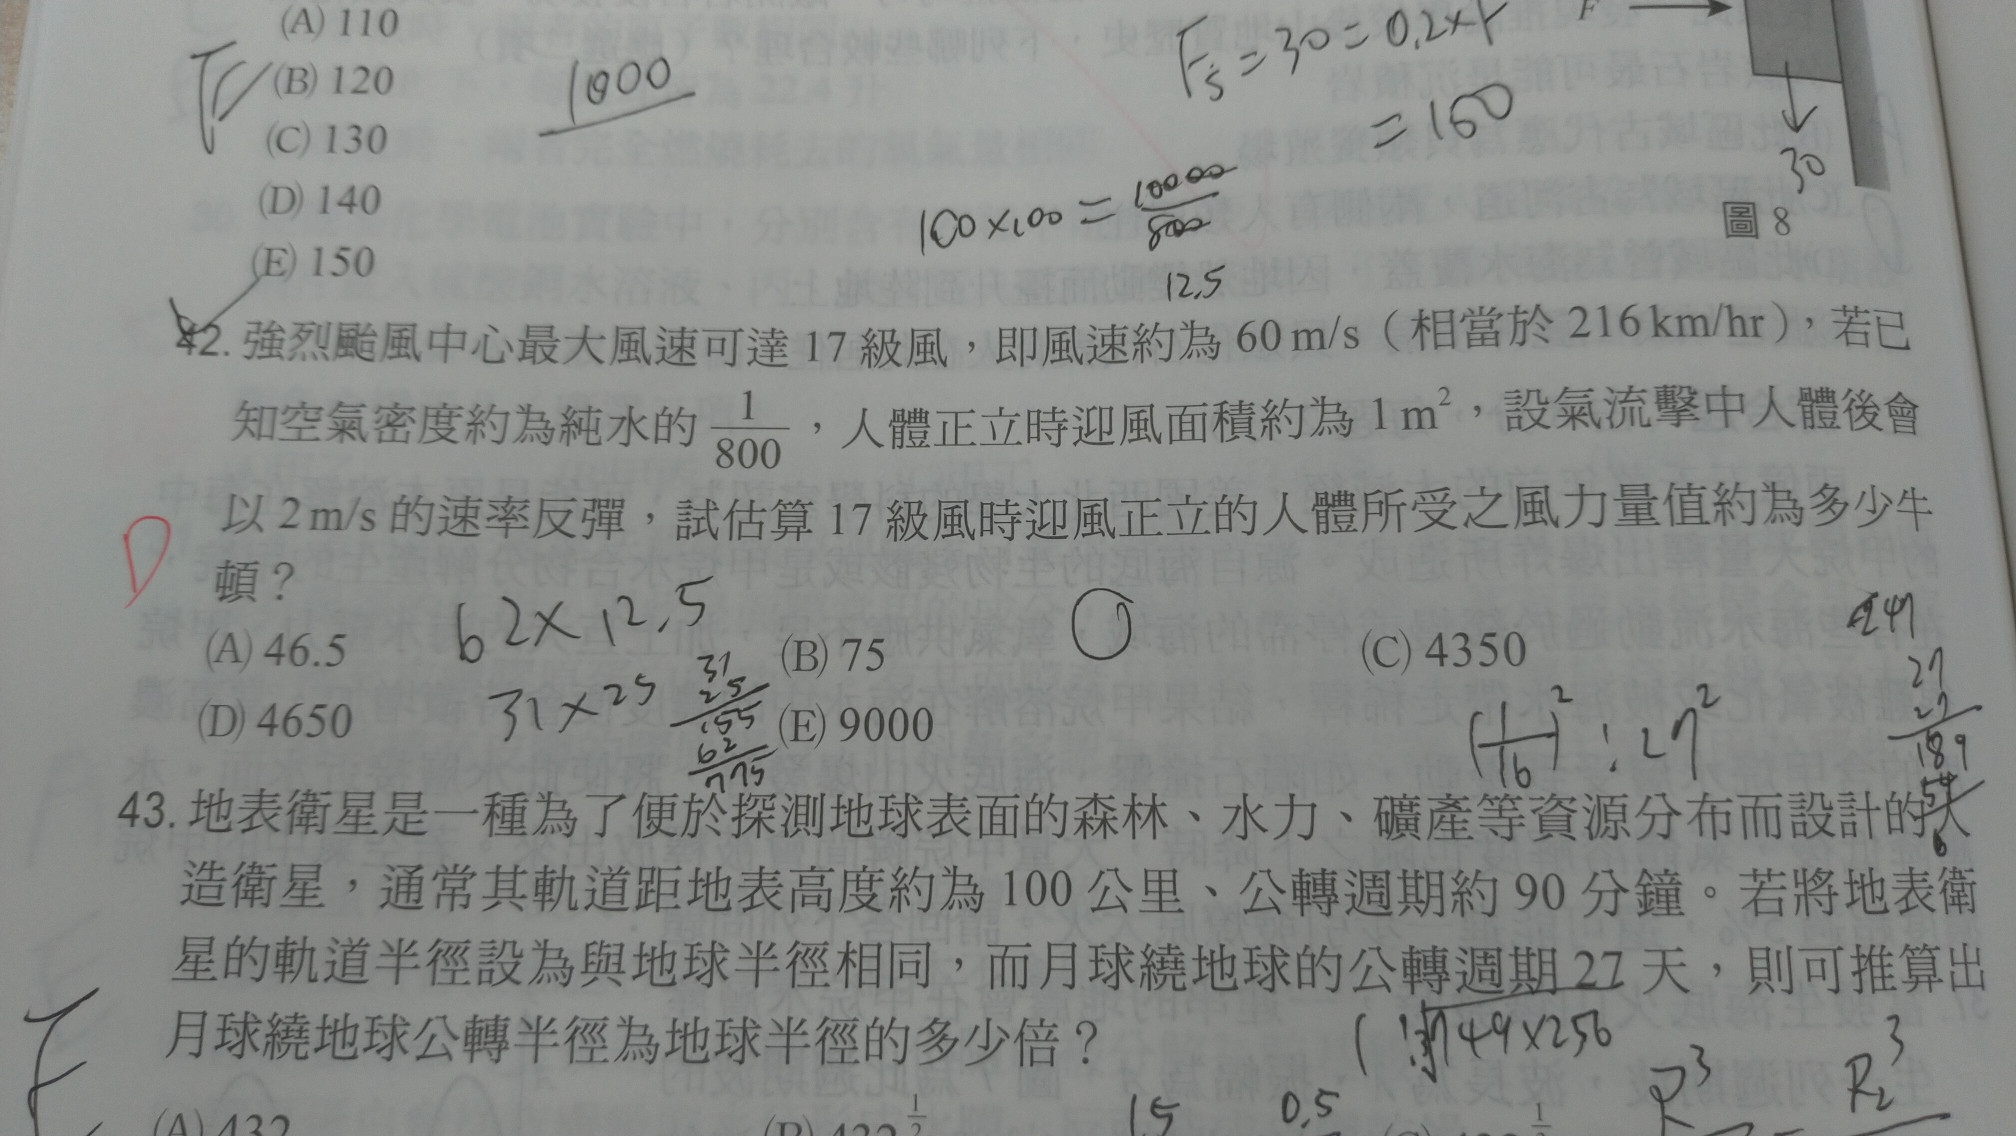 (A) 110
(B) 120
1000
(C) 130
(D) 140
(E) 150
= 150
F
30
圖 8
100×100 = 10000/800
12.5
42. 強烈颱風中心最大風速可達 17 級風，即風速約為 60 m/s（相當於 216 km/hr），若已
知空氣密度約為純水的 1/800，人體正立時迎風面積約為 1 m²，設氣流擊中人體後會
以 2 m/s 的速率反彈，試估算 17 級風時迎風正立的人體所受之風力量值約為多少牛
頓？
D
62×12.5
(A) 46.5
(B) 75
(C) 4350
31×25
31
25
155
62
775
(D) 4650
(E) 9000
(1/16)² : 27²
27
27
189
54
43. 地表衛星是一種為了便於探測地球表面的森林、水力、礦產等資源分布而設計的人
造衛星，通常其軌道距地表高度約為 100 公里、公轉週期約 90 分鐘。若將地表衛
星的軌道半徑設為與地球半徑相同，而月球繞地球的公轉週期 27 天，則可推算出
月球繞地球公轉半徑為地球半徑的多少倍？
(A) 432
1.5
0.5
R³
R₂³